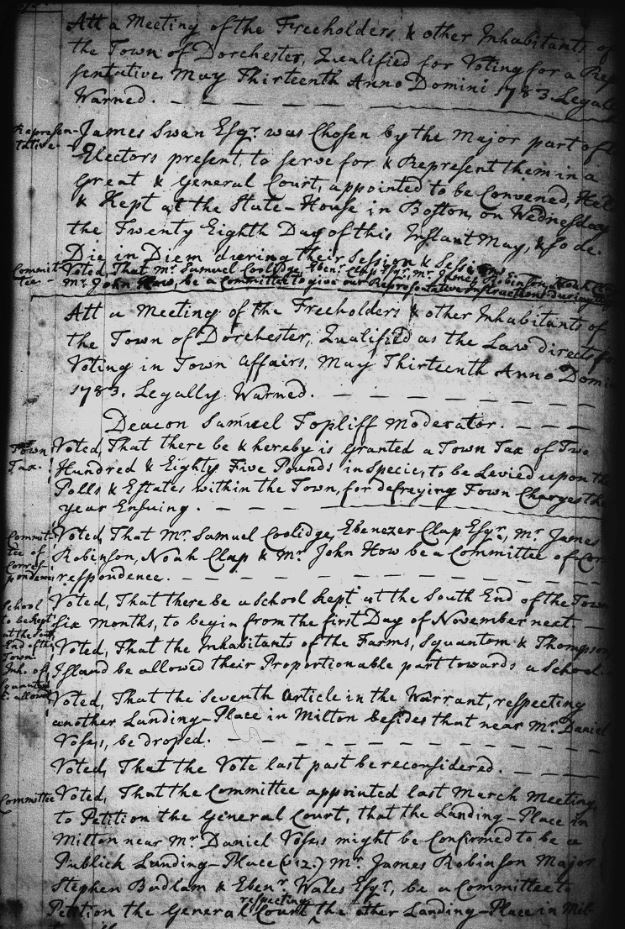 Att a Meeting of the Freeholders & other Inhabitants of
the Town of Dorchester, Qualified for Voting for a Rep
sentative, May Thirteenth Anno Domini 1783. Legally
Warned.
Represen-
tative-
James Swan Esqr. was Chosen by the Major part of
Electors present, to serve for & Represent them in a
Great & General Court, appointed to be Convened, Hel
& Kept at the State-House in Boston, on Wednesday
the Twenty Eighth Day of this Instant May, & so de
Die in Diem during their Session & Sessions.
Commit-
tee-
Voted, That Mr. Samuel Coolidge, Ebenr. Clap Esqr., Mr. James Robinson, Noah Clap
Mr. John How, be a Committee to give our Representative Instructions
Att a Meeting of the Freeholders & other Inhabitants of
the Town of Dorchester, Qualified as the Law directs for
Voting in Town Affairs, May Thirteenth Anno Domi
1783. Legally Warned.
Deacon Samuel Topliff Moderator.
Town
Tax.
Voted, That there be & hereby is Granted a Town Tax of Two
Hundred & Eighty Five Pounds in specie, to be Levied upon the
Polls & Estates within the Town, for defraying Town Charges the
year Ensuing.
Commit-
tee of
Corres-
pondence
Voted, That Mr. Samuel Coolidge, Ebenezer Clap Esqr., Mr. James
Robinson, Noah Clap & Mr. John How be a Committee of Cor
respondence.
School
to be Kept
at the South
End of the
Town
Voted, That there be a School Kept at the South End of the Town
Six Months, to begin from the first Day of November next.
Inh. of
Squantum
allowd
Voted, That the Inhabitants of the Farms, Squantom & Thompson
Island be allowed their Proportionable part towards a School.
Voted, That the seventh Article in the Warrant, respecting
another Landing-Place in Milton besides that near Mr. Daniel
Voses, be droped.
Voted, That the Vote last past be reconsidered.
Committee
Voted, That the Committee appointed last March Meeting
to Petition the General Court, that the Landing-Place in
Milton near Mr. Daniel Voses might be Confirmed to be a
Publick Landing-Place (viz.) Mr. James Robinson Major
Stephen Badham & Ebenr. Wales Esqr., be a Committee to
Petition the General Court respecting the other Landing-Place in Mil-